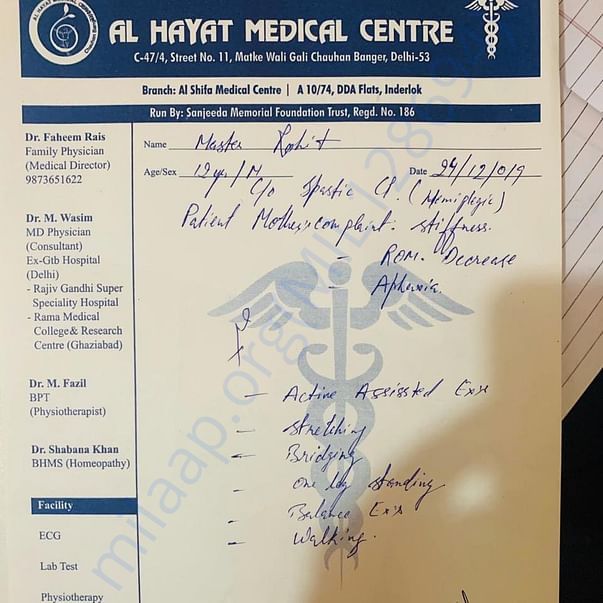 AL HAYAT MEDICAL CENTRE
C-47/4, Street No. 11, Matke Wali Gali Chauhan Banger, Delhi-53
Branch: Al Shifa Medical Centre | A 10/74, DDA Flats, Inderlok
Run By: Sanjeeda Memorial Foundation Trust, Regd. No. 186
Dr. Faheem Rais
Family Physician
(Medical Director)
9873651622
Dr. M. Wasim
MD Physician
(Consultant)
Ex-Gtb Hospital
(Delhi)
- Rajiv Gandhi Super
Speciality Hospital
- Rama Medical
College& Research
Centre (Ghaziabad)
Dr. M. Fazil
BPT
(Physiotherapist)
Dr. Shabana Khan
BHMS (Homeopathy)
Facility
ECG
Lab Test
Physiotherapy
Name Master Rohit
Age/Sex 12 yr/M Date 24/12/019
C/o Spastic CP. (Hemiplegic)
Patient Mother's complaint. Stiffness.
- ROM. Decrease
- Aphasia
Rx
- Active Assissted Exs
- Stretching
- Bridging
- one leg standing
- Balance Exs
- Walking.
milaap.org